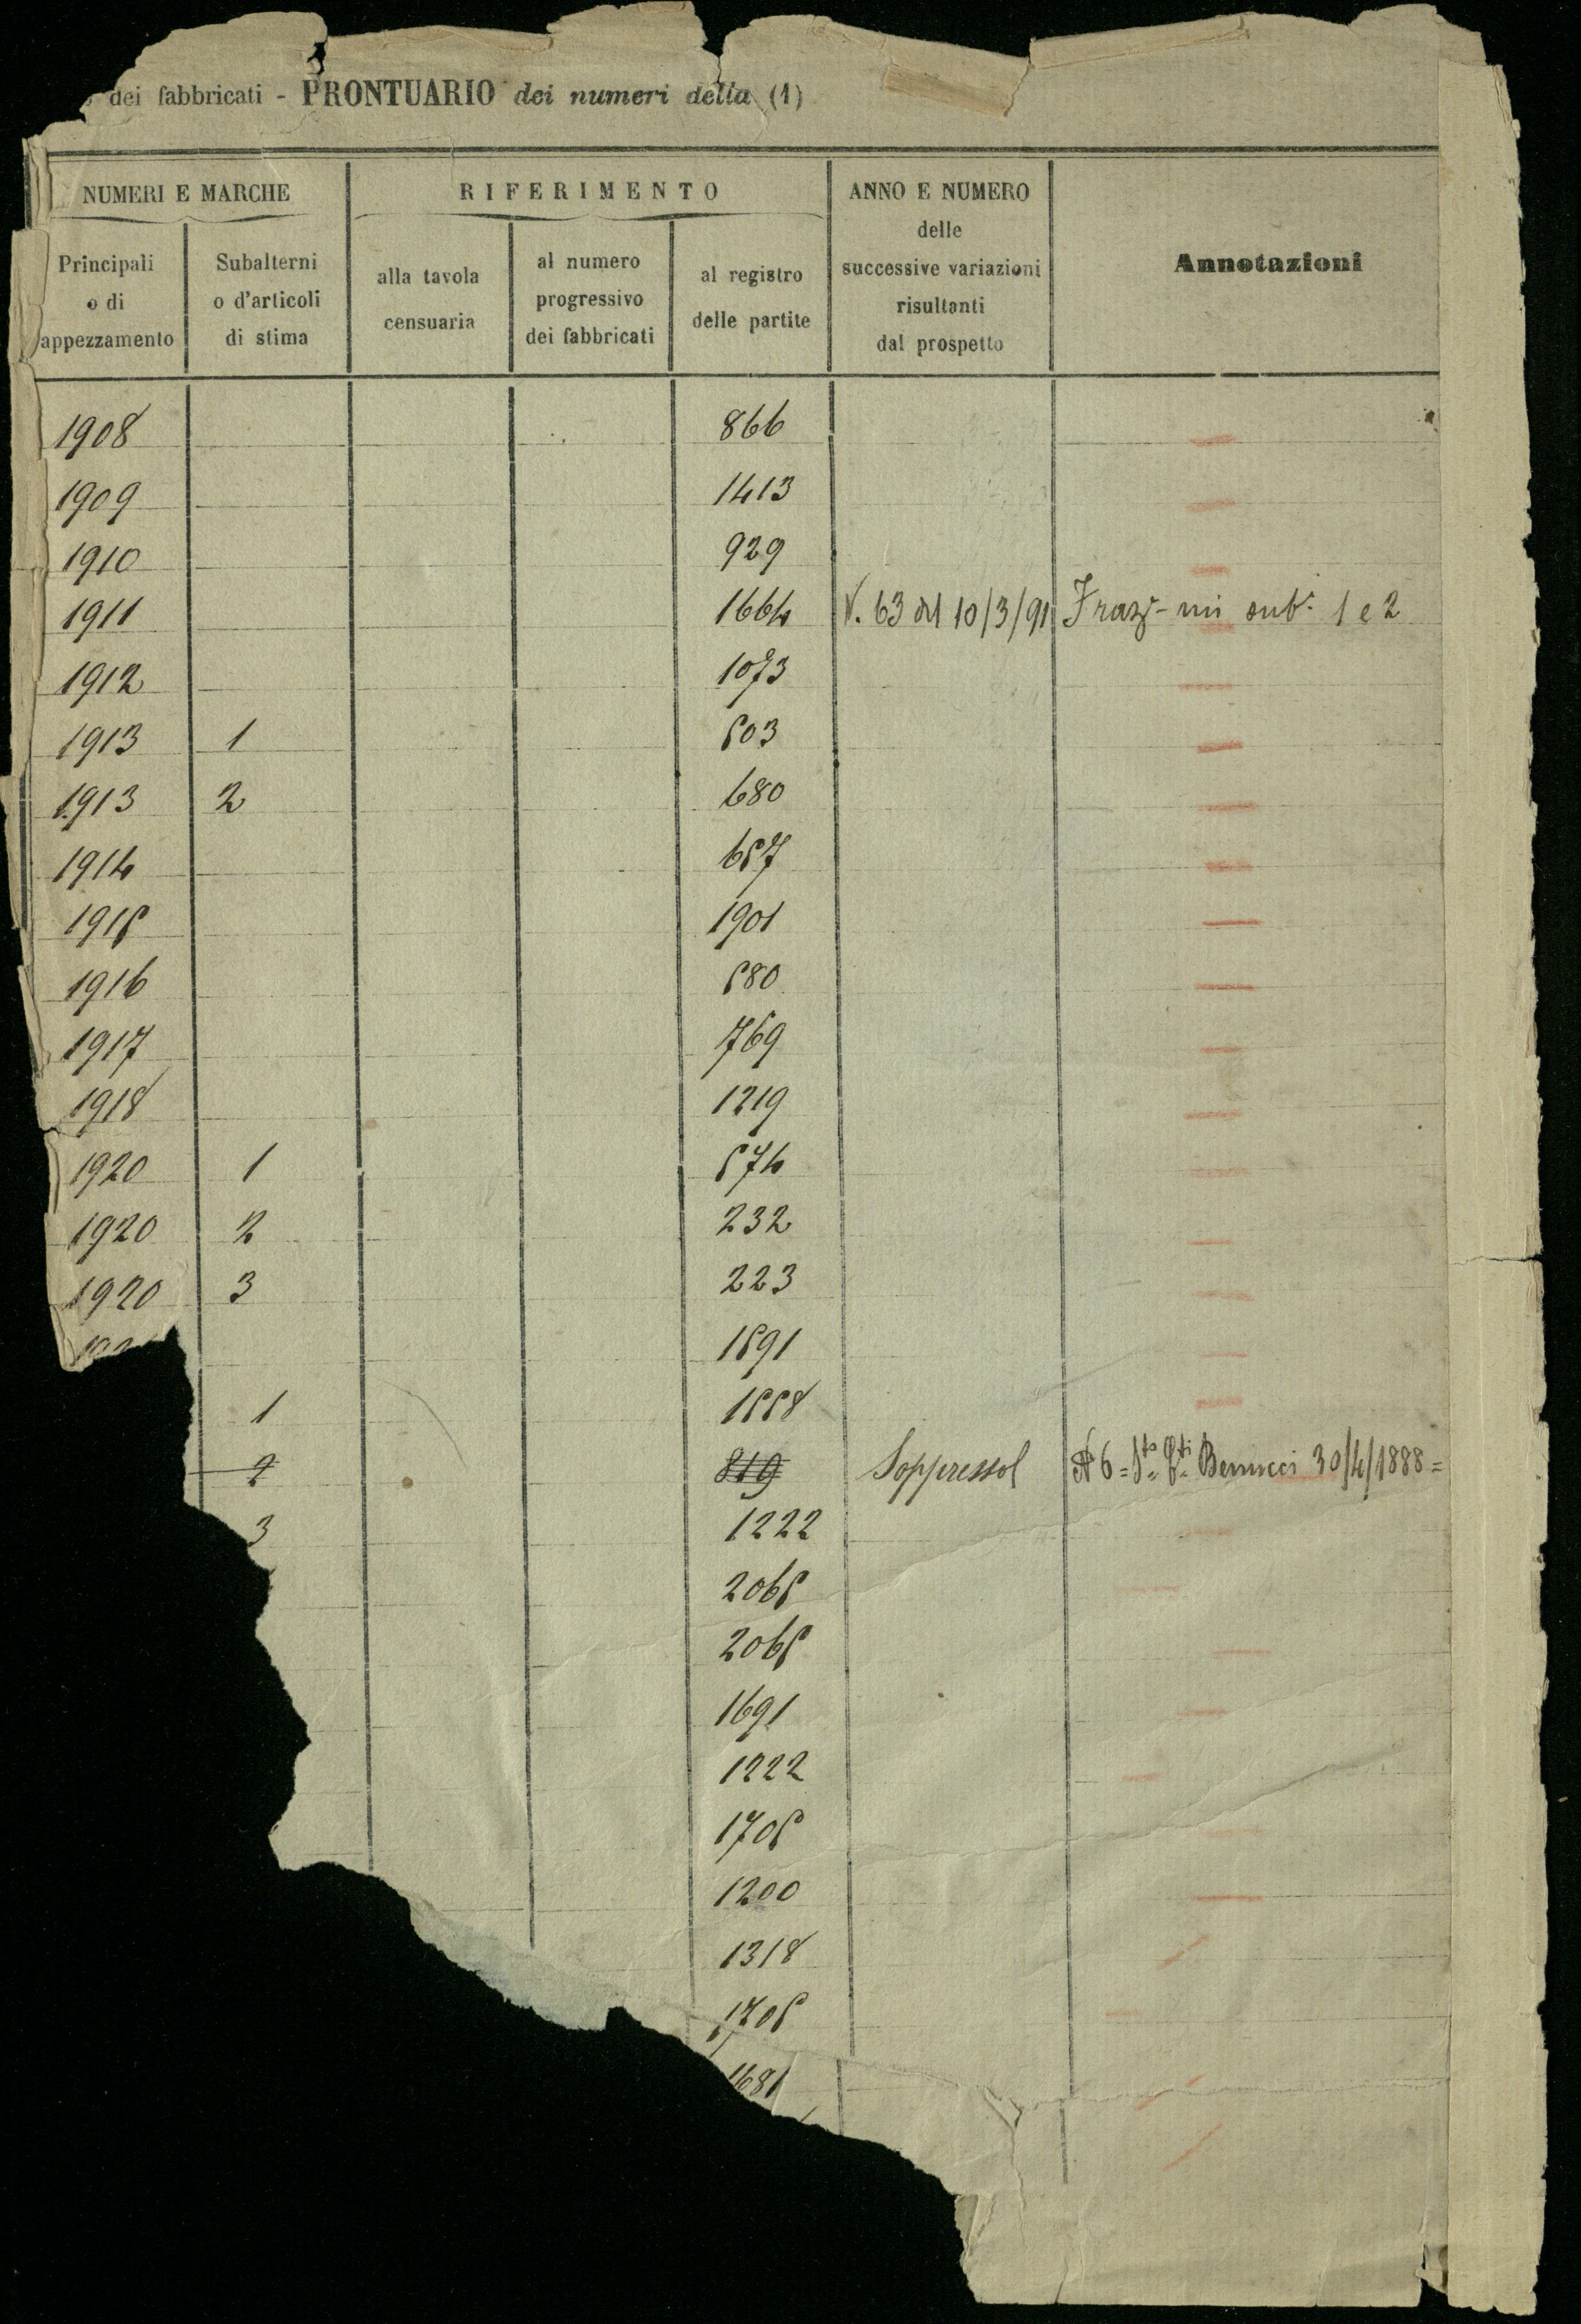 dei fabbricati - PRONTUARIO dei numeri della (1)
NUMERI E MARCHE
RIFERIMENTO
ANNO E NUMERO
delle
successive variazioni
risultanti
dal prospetto
Annotazioni
Principali
o di
appezzamento
Subalterni
o d'articoli
di stima
alla tavola
censuaria
al numero
progressivo
dei fabbricati
al registro
delle partite
1908 866
1909 1413
1910 929
1911 1664 N. 63 del 10/3/91 Fraz- mi sub. 1 e 2
1912 1073
1913 1 503
1913 2 680
1914 657
1915 1901
1916 580
1917 769
1918 1219
1920 1 574
1920 2 232
1920 3 223
1591
1 1558
2 819 Soppresso N 6 = Benucci 30/4/1888 =
3 1222
2065
2065
1691
1222
1705
1200
1318
1705
1681